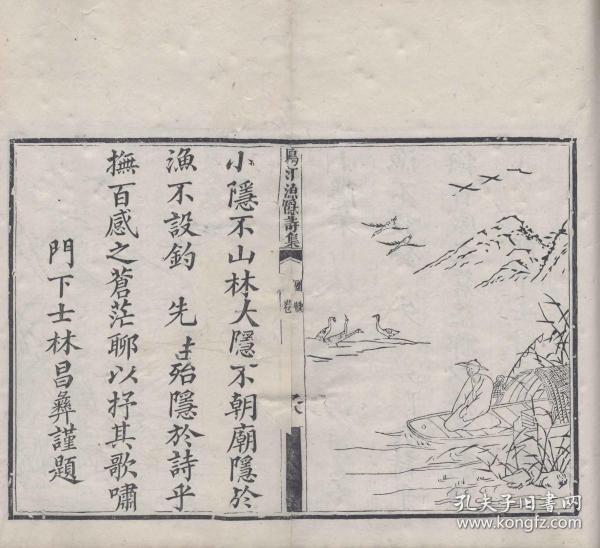 小隱不山林大隱不朝廟隱於
漁不設釣　先生殆隱於詩乎
撫百感之蒼茫聊以抒其歌嘯
門下士林昌彝謹題
漁隱詩集
孔夫子旧书网
www.kongfz.com